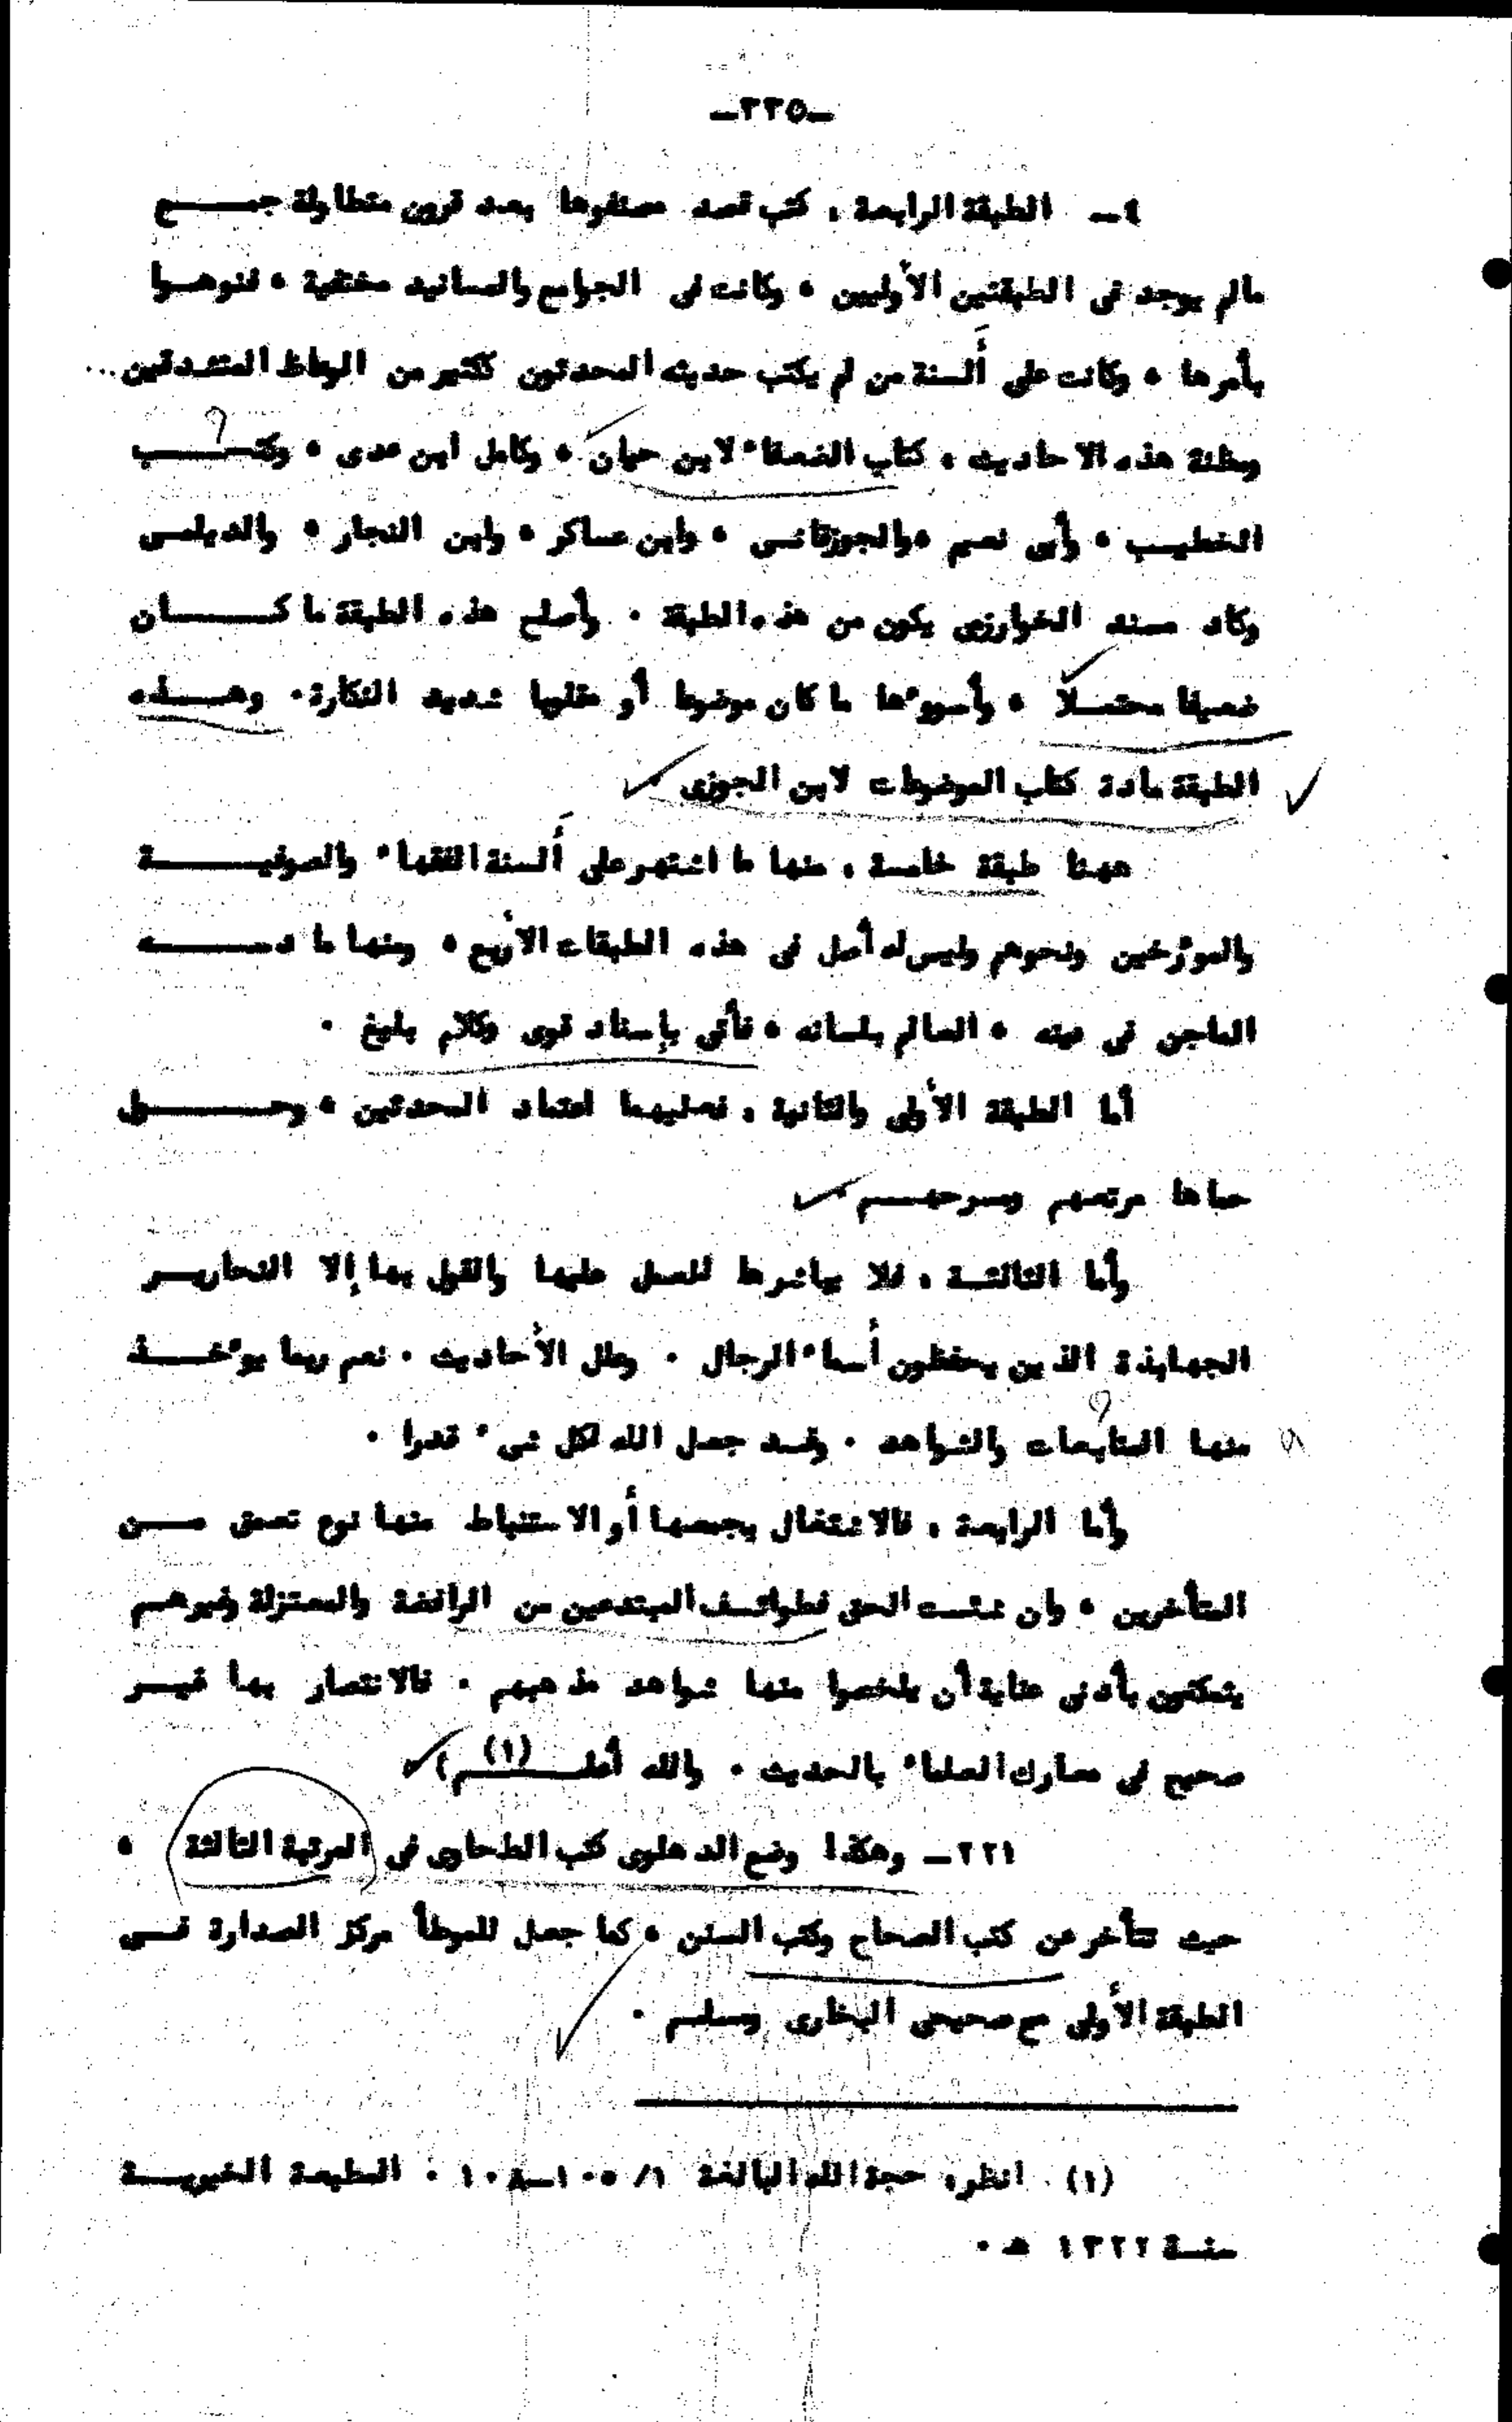 -٢٢٥-
٤- الطبقة الرابعة ، كتب قصد مصنفوها بعد قرون متطاولة جمع
مالم يوجد فى الطبقتين الأوليين ، وكانت فى الجوامع والمسانيد مختفية ، فنوهوا
بأمرها ، وكانت على ألسنة من لم يكتب حديثه المحدثون ككثير من الوعاظ المتشدقين ...
ومظنة هذه الاحاديث ، كتاب الضعفاء لابن حبان ، وكامل ابن عدى ، وكتب
الخطيب ، وأبى نعيم ، والجوزقانى ، وابن عساكر ، وابن النجار ، والديلمى
وكاد مسند الخوارزمى يكون من هذه الطبقة . وأصلح هذه الطبقة ما كان
ضعيفا محتملا ، وأسوؤها ما كان موضوعا أو مقلوبا شديد النكارة . وهذه
الطبقة مادة كتاب الموضوعات لابن الجوزى .
ههنا طبقة خامسة ، منها ما اشتهر على ألسنة الفقهاء والصوفية
والمؤرخين ونحوهم وليس له أصل فى هذه الطبقات الأربع ، ومنها ما دسه
الماجن فى دينه ، العالم بلسانه ، فأتى بإسناد قوى وكلام بليغ .
أما الطبقة الأولى والثانية ، فعليهما اعتماد المحدثين ، وحول
حماها مرتعهم ومسرحهم .
وأما الثالثة ، فلا يباشرها للعمل عليها والقول بها إلا النحارير
الجهابذة الذين يحفظون أسماء الرجال . وعلل الأحاديث . نعم ربما يؤخذ
منها المتابعات والشواهد . وقد جعل الله لكل شىء قدرا .
وأما الرابعة ، فالاشتغال بجمعها أو الاستنباط منها نوع تعمق من
المتأخرين ، وان شئت الحق فطوائف المبتدعين من الرافضة والمعتزلة وغيرهم
يتمكنون بأدنى عناية أن يلخصوا منها شواهد مذهبهم . فالانتصار بها غير
صحيح فى معارك العلماء بالحديث . والله أعلم) (١)
٢٢١- وهكذا وضع الدهلوى كتب الطحاوى فى المرتبة الثالثة ،
حيث تتأخر عن كتب الصحاح وكتب السنن ، كما جعل للموطأ مركز الصدارة فى
الطبقة الأولى مع صحيحى البخارى ومسلم .
(١) انظر: حجة الله البالغة ١/ ١٠٥-١٠٨ . المطبعة الخيرية
سنة ١٣٢٢ هـ .